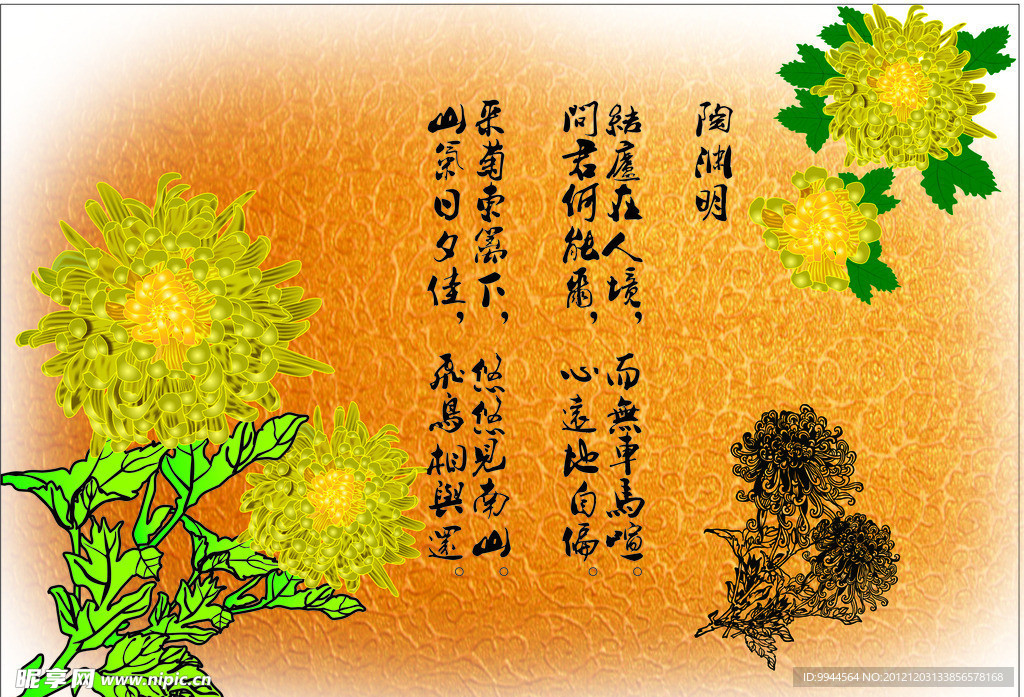 陶渊明
結廬在人境，而無車馬喧。
問君何能爾，心遠地自偏。
采菊東籬下，悠悠見南山。
山氣日夕佳，飛鳥相與還。
昵享网 www.nipic.cn
ID:9944564 NO:20121203133856578168